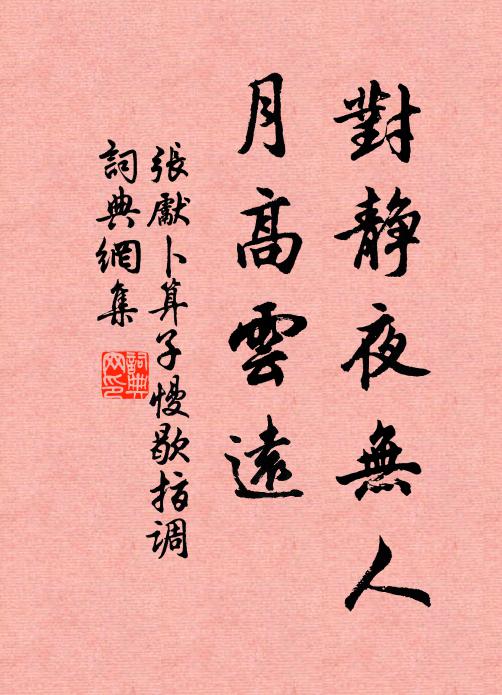 對靜夜無人
月高雲遠
張獻卜算子慢歇指调
詞典網集
詞典網印